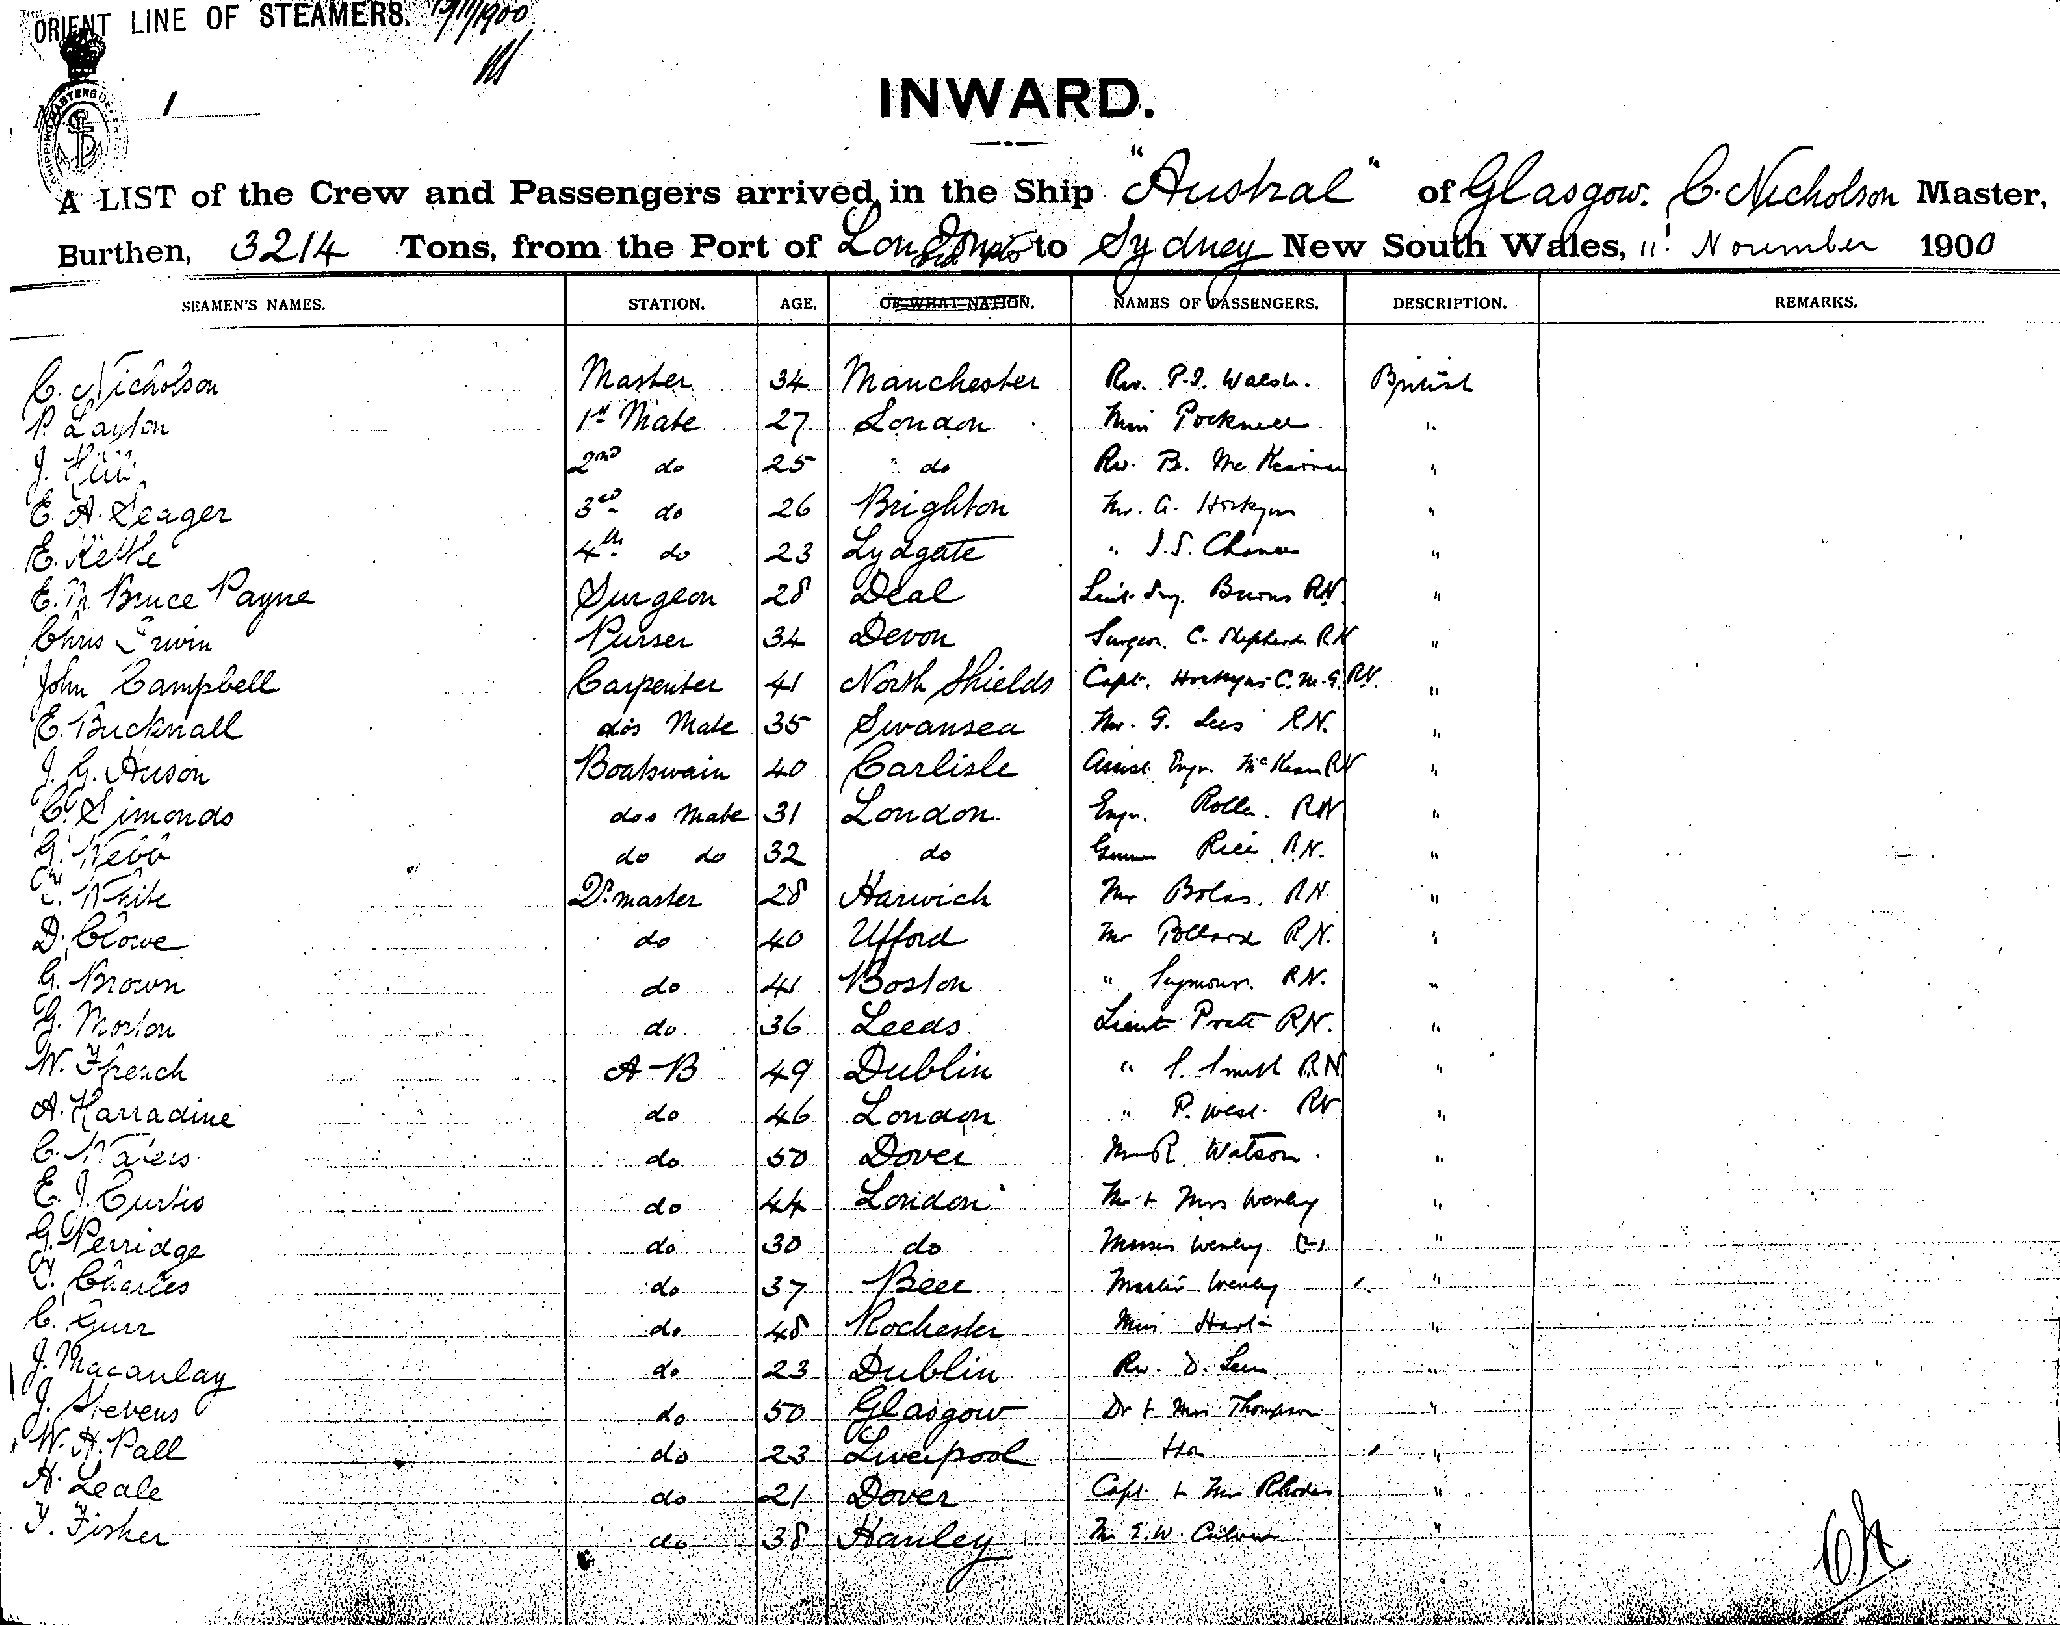 ORIENT LINE OF STEAMERS. 13/11/1900
1
INWARD.
A LIST of the Crew and Passengers arrived in the Ship "Austral" of Glasgow. C. Nicholson Master,
Burthen, 3214 Tons, from the Port of London to Sydney New South Wales, 11 November 1900
SEAMEN'S NAMES. STATION. AGE. OF WHAT NATION. NAMES OF PASSENGERS. DESCRIPTION. REMARKS.
C. Nicholson Master 34 Manchester Rev. P.J. Walsh. British
P. Layton 1st Mate 27 London Miss Pocknell "
J. Hill 2nd do 25 do Rev. B. "
E. A. Seager 3rd do 26 Brighton Mr. G. "
E. Kettle 4th do 23 Lydgate " J.S. "
E. M. Bruce Payne Surgeon 28 Deal Burns RN. "
Chris Irwin Purser 34 Devon Surgeon. C. Shepherd RN "
John Campbell Carpenter 41 North Shields Capt. C.M.G. RN. "
E. Bucknall do's Mate 35 Swansea Mr. G. Lees RN. "
J. G. Anson Boatswain 40 Carlisle Assist Engr. RN "
C. Simonds do's Mate 31 London Engr. RN "
G. Webb do do 32 do Gunner Rice RN. "
T. White Qr. master 28 Harwich Mr Bolas. RN. "
D. Clowe do 40 Ufford Mr Pollard RN. "
G. Brown do 41 Boston " Seymour. RN. "
G. Morton do 36 Leeds Lieut Pratt RN. "
W. French A-B 49 Dublin " S. Smith RN "
A. Harradine do 46 London " P. West. RN "
C. Waters do 50 Dover R. Watson. "
E. J. Curtis do 44 London Mr & Mrs Wenley "
G. Perridge do 30 do Misses Wenley (2) "
T. Charles do 37 Beer Master Wenley "
C. Gurr do 48 Rochester Miss "
J. Macaulay do 23 Dublin Rev. D. "
J. Stevens do 50 Glasgow Dr & Mrs Thompson "
W. H. Pall do 23 Liverpool "
A. Leale do 21 Dover Capt & Mrs Rhodes "
T. Fisher do 38 Hanley Mr E.W. "